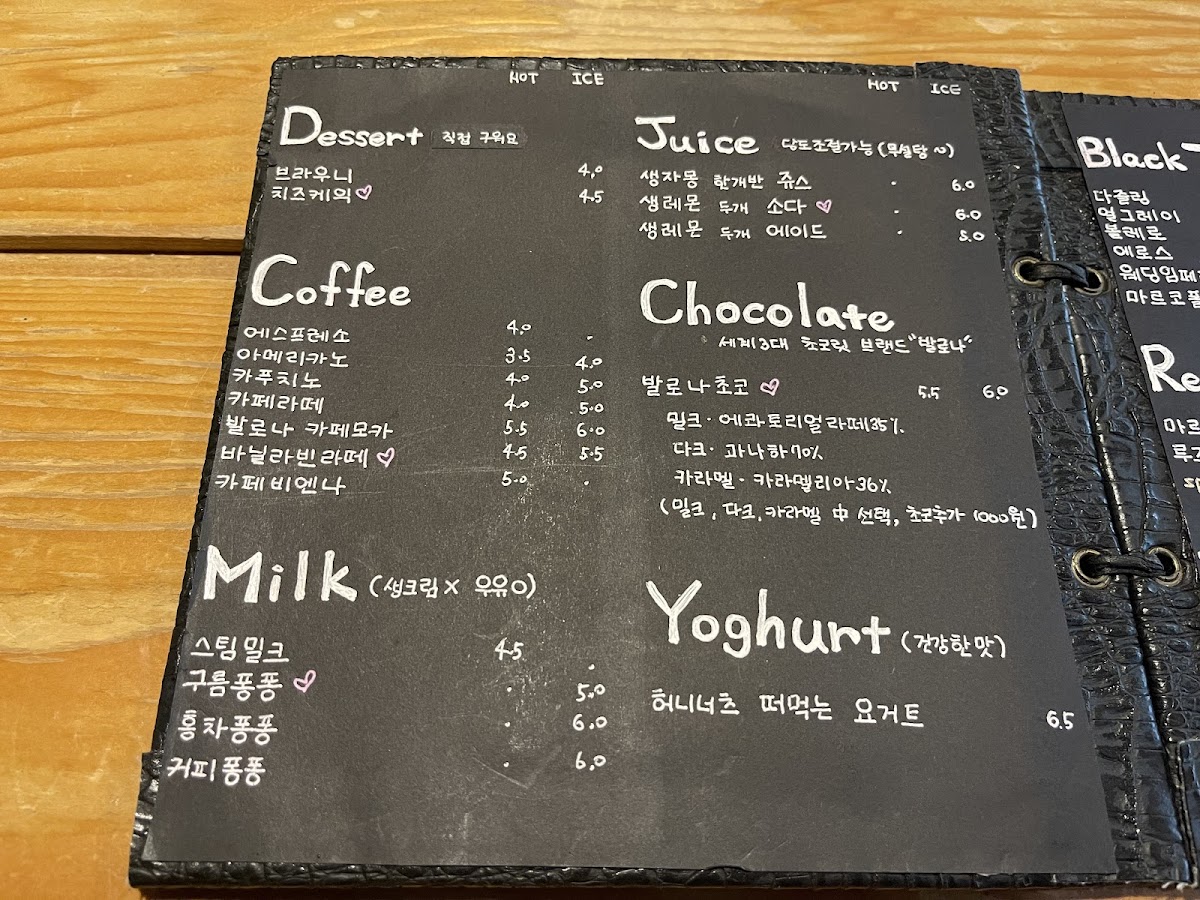 HOT ICE
Dessert 직접 구워요
브라우니 4.0
치즈케익♡ 4.5
Coffee
에스프레소 4.0 ·
아메리카노 3.5 4.0
카푸치노 4.0 5.0
카페라떼 4.0 5.0
발로나 카페모카 5.5 6.0
바닐라빈라떼♡ 4.5 5.5
카페비엔나 5.0 ·
Milk (생크림X 우유O)
스팀밀크 4.5 ·
구름퐁퐁♡ · 5.0
홍차퐁퐁 · 6.0
커피퐁퐁 · 6.0
HOT ICE
Juice 당도조절가능(무설탕~)
생자몽 한개반 쥬스 · 6.0
생레몬 두개 소다♡ · 6.0
생레몬 두개 에이드 · 5.0
Chocolate
세계3대 초코릿 브랜드"발로나"
발로나초코♡ 5.5 6.0
밀크·에콰토리얼라떼35%
다크·과나하70%
카라멜·카라멜리아36%
(밀크, 다크, 카라멜 中 선택, 초코추가 1000원)
Yoghurt (건강한맛)
허니너츠 떠먹는 요거트 6.5
Black
다즐링
얼그레이
볼레로
에로스
웨딩임페
마르코폴
Re
마르
루
sp